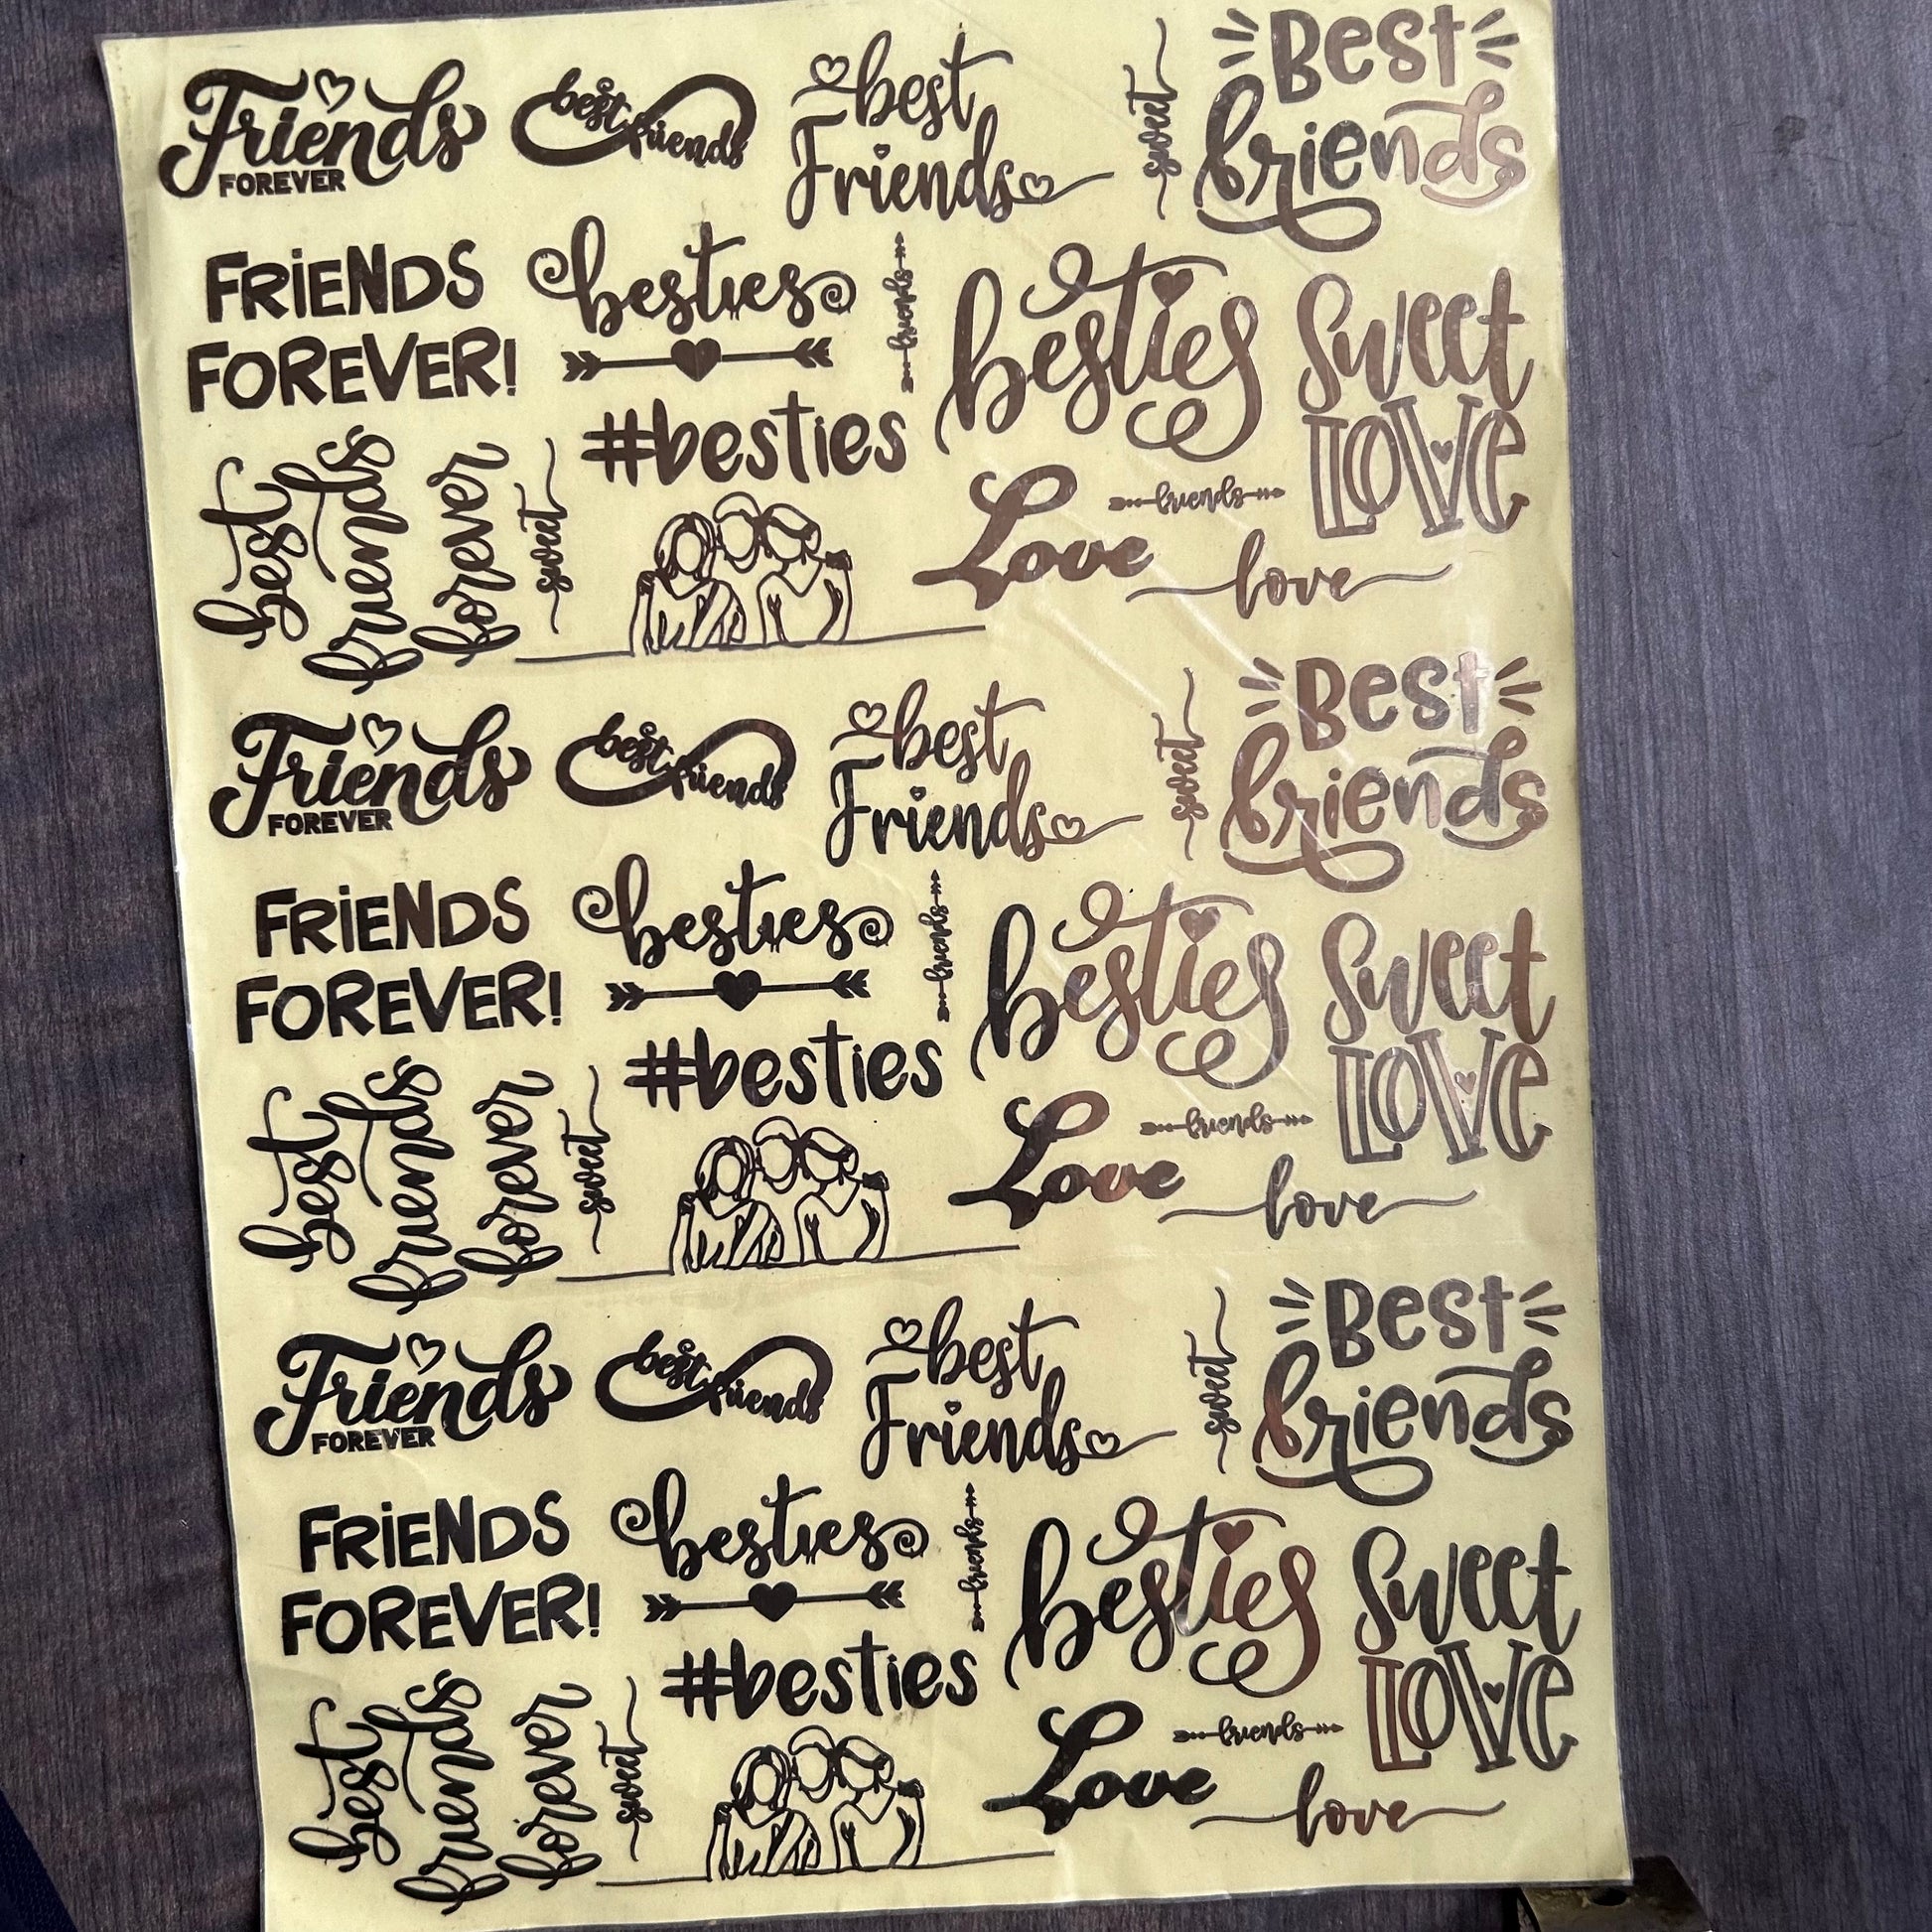 Friends
FOREVER
best
friends
best
Friends
sweet
Best
friends
FRiENDS
FOREVER!
besties
friends
besties
sweet
LOVe
#besties
best
friends
forever
sweet
Love
friends
love
Friends
FOREVER
best
friends
best
Friends
sweet
Best
friends
FRiENDS
FOREVER!
besties
friends
besties
sweet
LOVe
#besties
best
friends
forever
sweet
Love
friends
love
Friends
FOREVER
best
friends
best
Friends
sweet
Best
friends
FRiENDS
FOREVER!
besties
friends
besties
sweet
LOVe
#besties
best
friends
forever
sweet
Love
friends
love